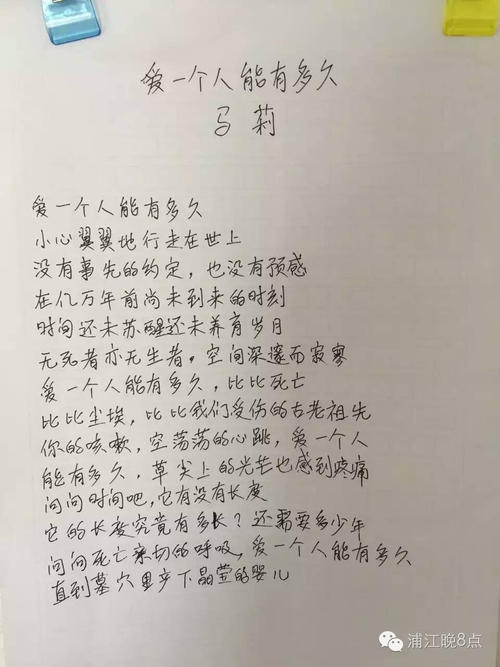 爱一个人能有多久
马莉
爱一个人能有多久
小心翼翼地行走在世上
没有事先的约定，也没有预感
在亿万年前尚未到来的时刻
时间还未苏醒还未养育岁月
无死者亦无生者，空间深邃而寂寥
爱一个人能有多久，比比死亡
比比尘埃，比比我们受伤的古老祖先
你的咳嗽，空荡荡的心跳，爱一个人
能有多久，草尖上的光芒也感到疼痛
问问时间吧，它有没有长度
它的长度究竟有多长？还需要多少年
问问死亡亲切的呼吸，爱一个人能有多久
直到墓穴里产下晶莹的婴儿
浦江晚8点